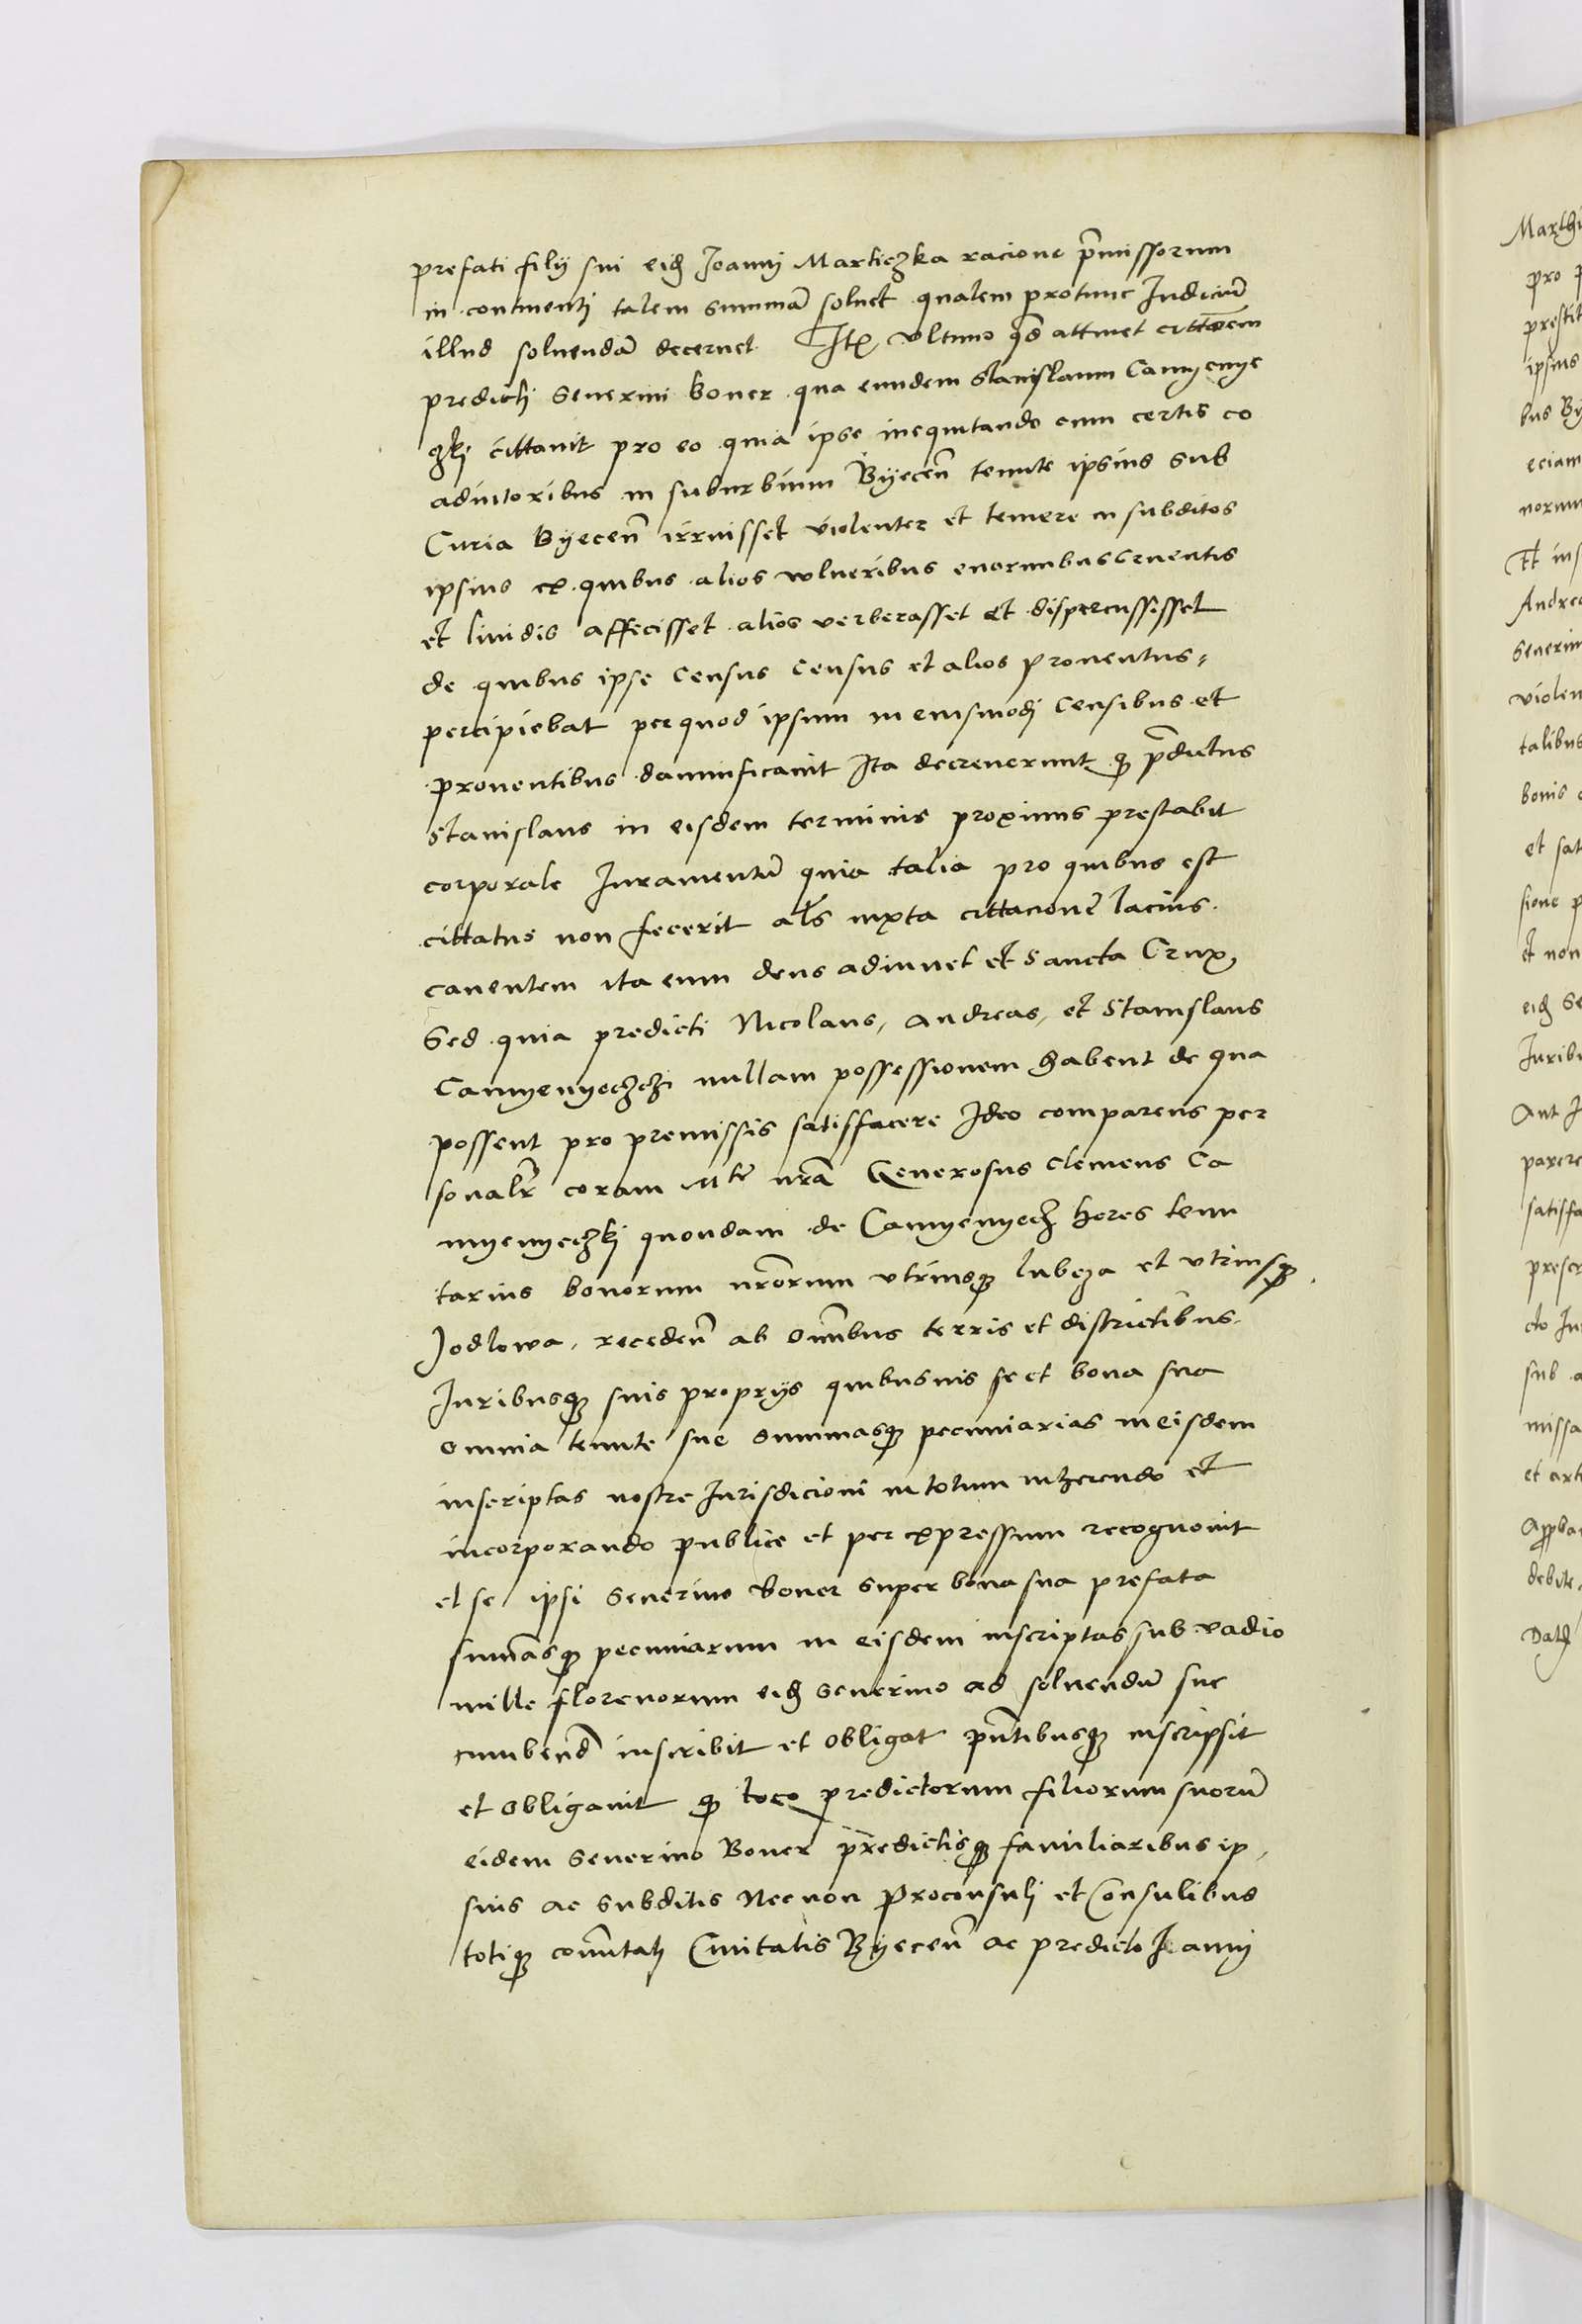 prefati filij sui eid Joannj Marticzka racione p̄missorum
in continentj talem summā soluet qualem protunc Iudiciū
illud soluendā decernet Itē vltimo qd̄ attinet cittōem
predictj Seuerini boner qua eundem Stanislaum Camyenye
czkj cittauit pro eo quia ipse inequitando cum certis co
adiutoribus in suburbium Byecen̄ tenute ipsius sub
Curia Byecen̄ irruisset violenter et temere in subditos
ipsius ex quibus alios wlneribus enormibus cruentis
et liuidis affecisset alios verberasset et dispercussisset
de quibus ipse Census Census et alios prouentus
percipiebat per quod ipsum in eiusmodj Censibus et
prouentibus damnificauit Ita decreuerunt q̄ p̄dictus
Stanislaus in eisdem terminis proximus prestabit
corporale Iuramentū quia talia pro quibus est
cittatus non fecerit al̄s iuxta cittacionē lacius
canentem ita eum deus adiuuet et Sancta Crux,
Sed quia predicti Nicolaus, Andreas, et Stanislaus
Camyenyeczczi nullam possessionem habent de qua
possent pro premissis satisfacere Ideo comparens per
sonalr̄ coram Mte nrā Generosus Clemens Ca
myenyeczkj quondam de Camyenyecz heres tenu
tarius bonorum nrōrum vtriusq3 lubcza et vtriusq3
Jodlowa, receden̄ ab om̄ibus terris et districtibus
Iuribusq3 suis proprijs quibusuis se et bona sua
omnia tenute sue summasq3 pecuniarias in eisdem
inscriptas nostre Iurisdicioni in totum inherendo et
incorporando publice et per expressum recognouit
et se ipsi Seuerino boner super bona sua prefata
sum̄asq3 pecuniarum in eisdem inscriptas sub vadio
mille florenorum eid Seuerino ad soluendū suc
cumbend̄ inscribit et obligat pn̄tibusq3 inscripsit
et obligauit q̄ loco predictorum filiorum suorū
eidem Seuerino Boner predictisq3 familiaribus ip,
sius ac subditis Necnon Proconsulj et Consulibus
totiq3 com̄itatj Ciuitatis Byecen̄ ac predicto Joannj